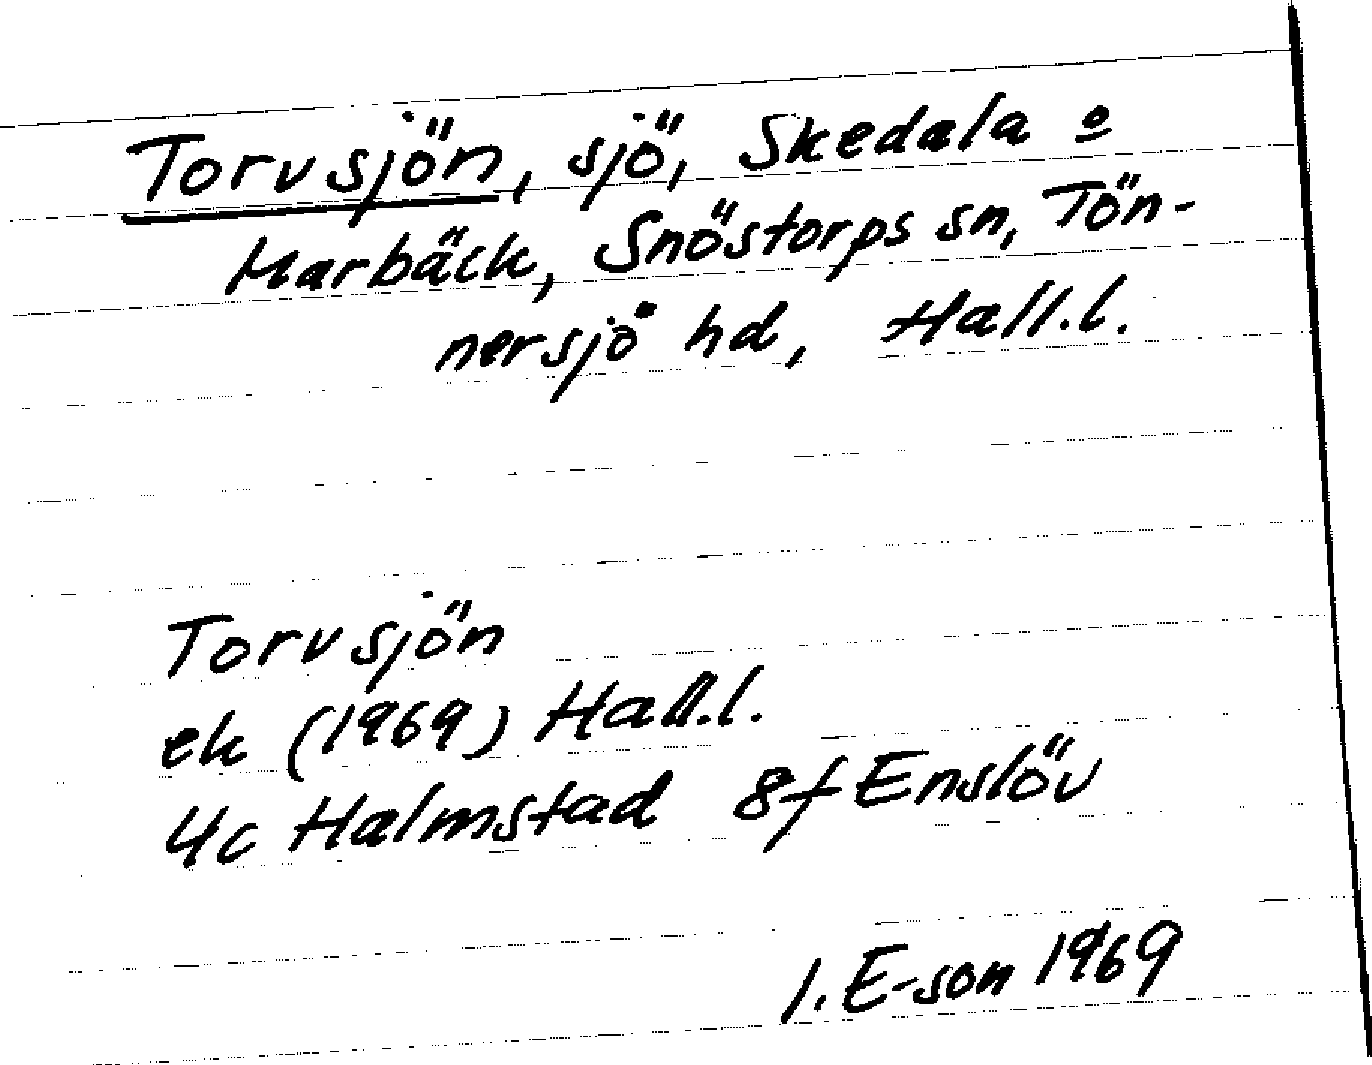 Torvsjön, sjö, Skedala o
Marbäck, Snöstorps sn, Tön-
nersjö hd, Hall.l.
Torvsjön
ek (1969) Hall.l.
4c Halmstad 8f Enslöv
I. E-son 1969